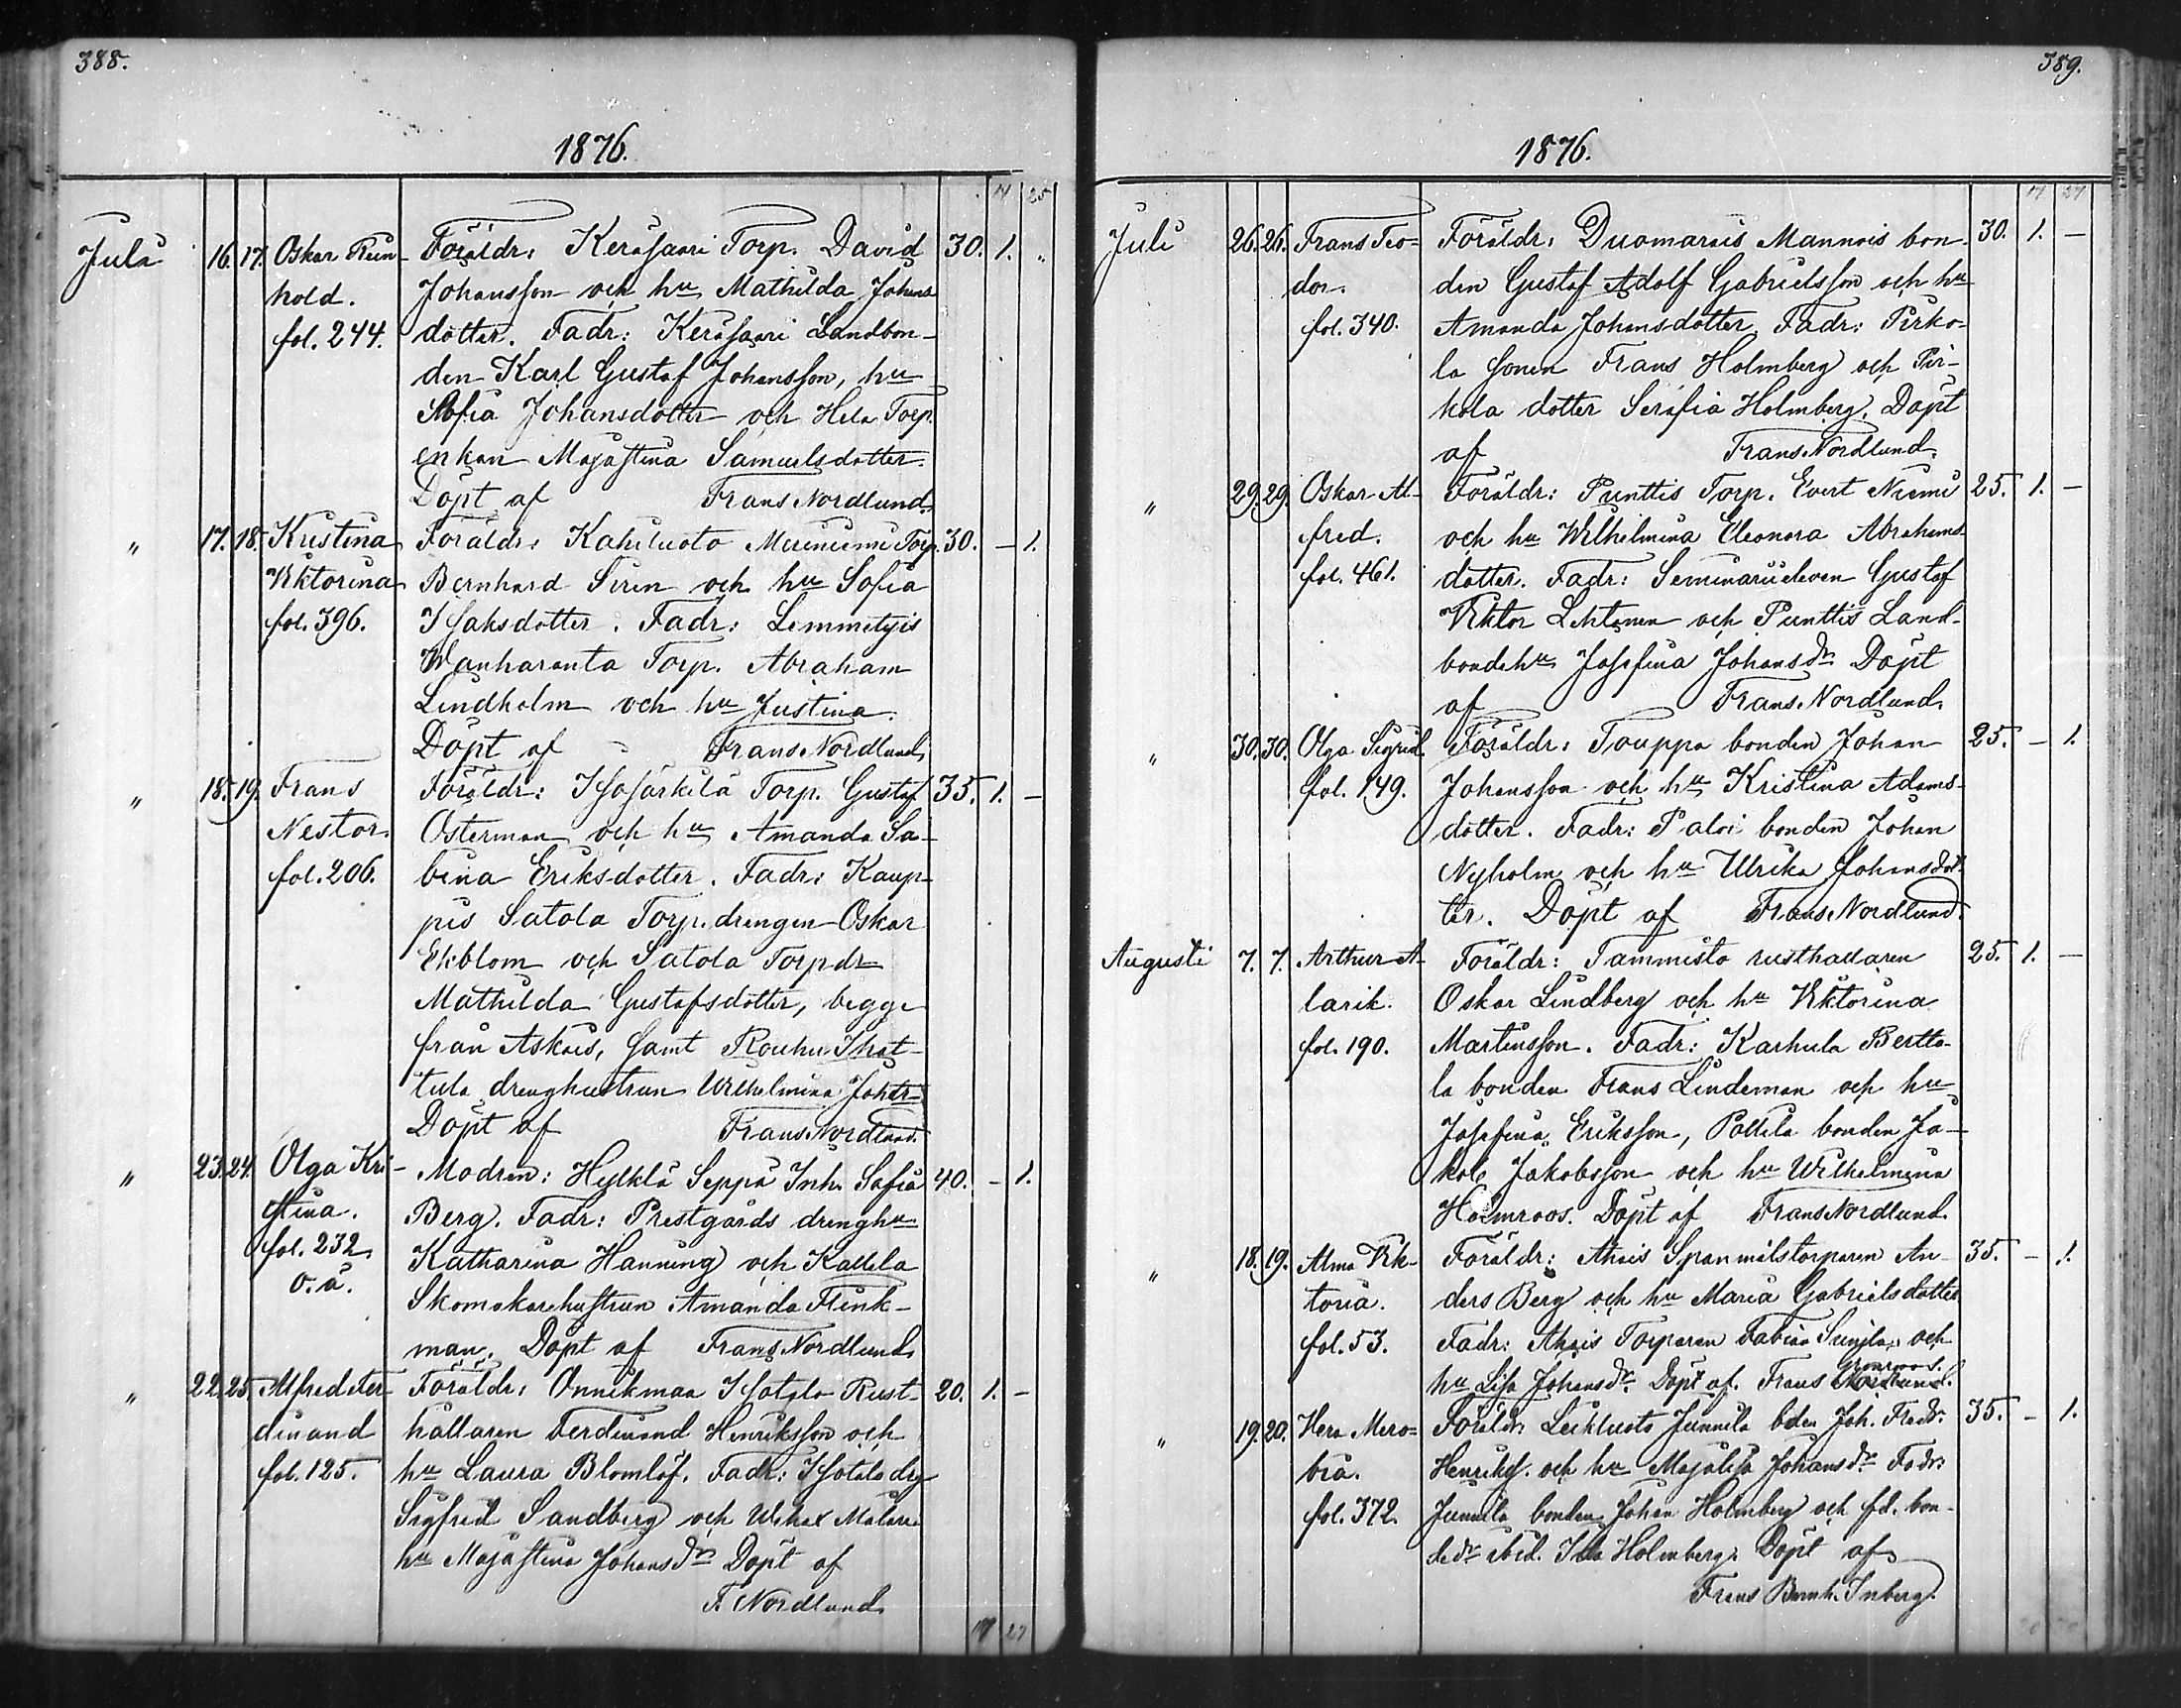 388.
1876.
14 25
Juli 16. 17. Oskar Rein- Föräldr: Kerasaari Torp. David 30. 1. "
hold. Johansson och hu Mathilda Johans
fol. 244. dotter. Fadr: Kerasaari Landbon-
den Karl Gustaf Johansson, hu
Sofia Johansdotter och Hela Torp.
enkan Majastina Samuelsdotter.
Döpt af Frans Nordlund.
" 17. 18. Kristina Föräldr: Kahiluoto Meriniemi Torp. 30. — 1.
Viktorina Bernhard Siren och hu Sofia
fol. 396. Isaksdotter. Fadr: Lemmetyis
Wanharanta Torp. Abraham
Lindholm och hu Justina.
Döpt af Frans Nordlund.
" 18. 19. Frans Föräldr: Isosärkilä Torp. Gustaf 35. 1. —
Nestor. Österman och hu Amanda Sa-
fol. 206. bina Eriksdotter. Fadr: Kaup-
pis Satola Torp. drengen Oskar
Ekblom och Satola Torpdr
Mathilda Gustafsdotter, begge
från Askais, samt Rouhu
tula drenghustrun Wilhelmina Johdr
Döpt af Frans Nordlund.
" 23. 24. Olga Kri- Modren: Hylkilä Seppä Inh. Sofia 40. — 1.
stina. Berg. Fadr: Prestgårds drenghu
fol. 232 Katharina Hanning och Kallela
o. ä. Skomakarehustrun Amanda Flink-
man. Döpt af Frans Nordlund.
" 22. 25. Alfred Fer- Föräldr: Onnikmaa Isotalo Rust- 20. 1. —
dinand hållaren Ferdinand Henriksson och
fol. 125. hu Laura Blomlöf. Fadr: Isotalo drg
Sigfrid Sandberg och Målare
hu Majastina Johansdr Döpt af
F. Nordlund.
17 27
389.
1876.
17 27
Juli 26. 26. Frans Teo- Föräldr: Duomarais Mannois bon- 30. 1. —
dor. den Gustaf Adolf Gabrielsson och hu
fol. 340. Amanda Johansdotter. Fadr: Pirko-
la sonen Frans Holmberg och Pir-
kola dotter Serafia Holmberg. Döpt
af Frans Nordlund.
" 29. 29. Oskar Al- Föräldr: Punttis Torp. Evert Niemi 25. 1. —
fred. och hu Wilhelmina Eleonora Abrahams-
fol. 461. dotter. Fadr: Seminariieleven Gustaf
Viktor Lehtonen och Punttis Land-
bondehu Josefina Johansdr Döpt
af Frans Nordlund.
" 30. 30. Olga Sigrid Föräldr: Touppa bonden Johan 25. — 1.
fol. 149. Johansson och hu Kristina Adams-
dotter. Fadr: Paloi bonden Johan
Nyholm och hu Ulrika Johansdot-
ter. Döpt af Frans Nordlund.
Augusti 7. 7. Arthur A- Föräldr: Tammisto rusthållaren 25. 1. —
larik. Oskar Lindberg och hu Viktorina
fol. 190. Martinsson. Fadr: Karhula Bertta-
la bonden Frans Lindeman och hu
Josefina Eriksson, Pollela bonden Ja-
kob Jakobsson och hu Wilhelmina
Holmroos. Döpt af Frans Nordlund.
" 18. 19. Alma Vik- Föräldr: Ahais Spanmålstorparen An- 35. — 1.
toria. ders Berg och hu Maria Gabrielsdotter
fol. 53. Fadr: Ahais Torparen Fabian och
Grönroos.
hu Lisa Johansdr. Döpt af. Frans Nordlund.
" 19. 20. Hera Mero- Föräldr: Leikluoto Junnila bden Joh. Fredr. 35. — 1.
bia. Henriks. och hu Majalisa Johansdr Fadr:
fol. 372. Junnila bonden Johan Holmberg och fd. bon-
dedr ibid. Ida Holmberg. Döpt af
Frans Bernh. Inberg.